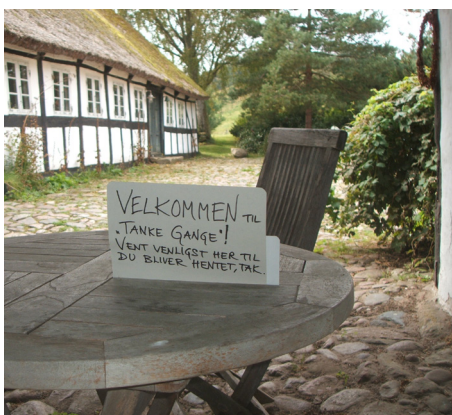 VELKOMMEN TIL
"TANKE GANGE"!
VENT VENLIGST HER TIL
DU BLIVER HENTET, TAK